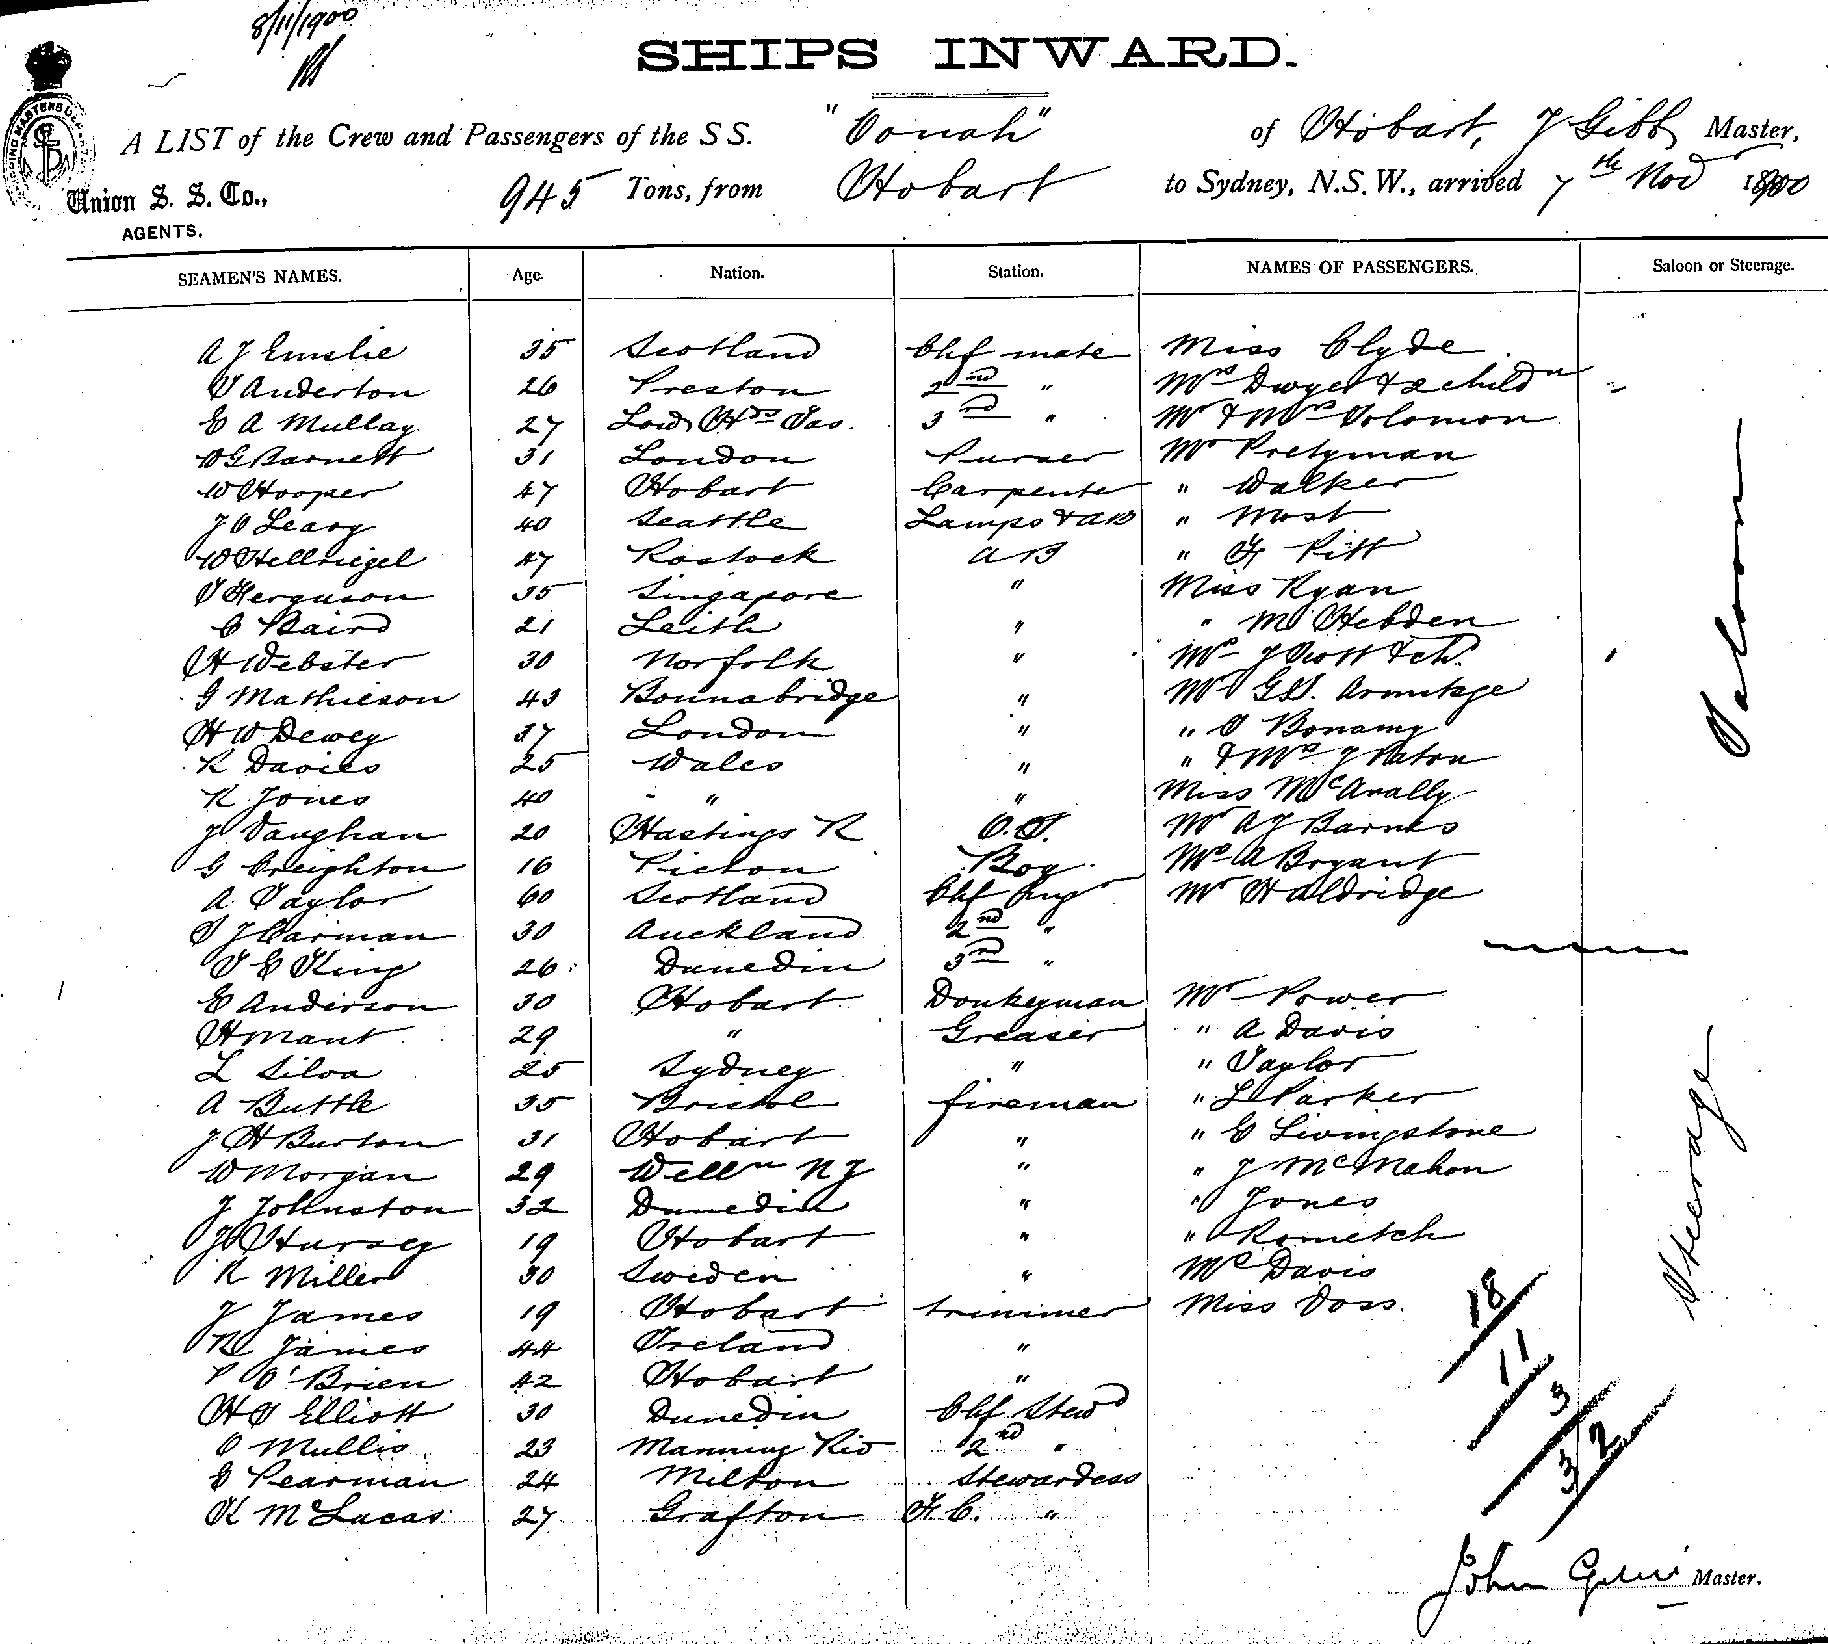 8/11/1900
SHIPS INWARD.
A LIST of the Crew and Passengers of the S S. "Oonah" of Hobart, J Gibb Master,
Union S. S. Co., 945 Tons, from Hobart to Sydney, N.S.W., arrived 7th Nov 1900
AGENTS.
SEAMEN'S NAMES. Age. Nation. Station. NAMES OF PASSENGERS. Saloon or Steerage.
A J Emslie 35 Scotland Chf mate Miss Clyde
Anderton 26 Preston 2nd " Mrs Dwyer & 2 childn
E A Mullay 27 3rd " Mr & Mrs Solomon
W G Barnett 31 London Purser Mr Pretyman
W Hooper 47 Hobart Carpenter " Walker
J O Leary 40 Seattle Lamps & AB " Most
W Hellriegel 47 Rostock A B " F Pitt
Ferguson 35 Singapore " Miss Ryan
C Baird 21 Leith " " M Hebden
H Webster 30 Norfolk " J Scott & ch.
G Mathieson 43 Bonnabridge " Mr Armitage
H W Dewey 37 London " " Bonamy
R Davies 25 Wales " " & Mrs J Paton
R Jones 40 " " Miss McAnally
J Vaughan 20 Hastings R O.S. Mr A J Barnes
G Creighton 16 Picton Boy A Bryant
A Taylor 60 Scotland Chf Eng Mr H Aldridge
J Carman 30 Auckland 2nd "
E King 26 Dunedin 3rd "
E Anderson 30 Hobart Donkeyman Mr Power
H Mant 29 " Greaser " A Davis
L Silva 25 Sydney " " Taylor
A Buttle 35 Bristol fireman " L Parker
J H Burton 31 Hobart " " E Livingstone
W Morgan 29 Welln N Z " " J McMahon
J Johnston 32 Dunedin " " Jones
J Hursey 19 Hobart " " Rometch
R Miller 30 Sweden " Davis
J James 19 Hobart trimmer Miss Voss
R James 44 Ireland "
P O'Brien 42 Hobart "
H Elliott 30 Dunedin Chf Stewd
Mullis 23 Manning Riv 2nd "
Pearman 24 Milton Stewardess
K McLucas 27 Grafton F C. "
Saloon
Steerage
18
11
3
32
John Gibb Master.